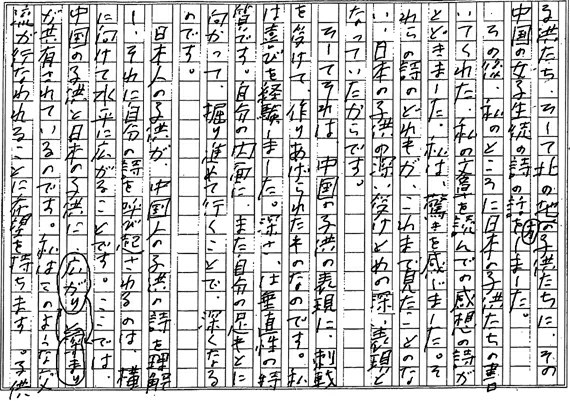 る子供たち、そして北の地の子供たちに、その
中国女子生徒の詩の話をしました。
その後、私のところに日本の子供たちの書
いてくれた、私の文章を読んでの感想の詩が
とどきました。私は、驚きを感じました。そ
れらの詩のどれもが、これまで見たことのな
い、日本の子供の深い受けとめの深い表現と
なっていたからです。
そしてそれは、中国の子供の表現に、刺戟
を受けて、作りあげられたものなのです。私
は喜びを経験しました。深さ、は垂直性の特
質です。自分の内面に、また自分の足もとに
向かって、掘り進めて行くことで、深くなる
のです。
日本人の子供が、中国人の子供の詩を理解
し、それに自分の詩を呼び起こされるのは、横
に向けて水平に広がることです。ここでは、
中国の子供と日本の子供に、広がり
が共有されているのです。私はこのような交
流が行なわれることに希望を持ちます。子供